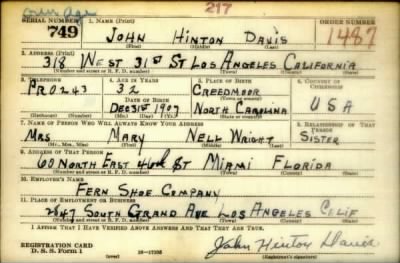 own age
217
SERIAL NUMBER 1. NAME (Print) ORDER NUMBER
749 JOHN HINTON DAVIS 1487
(First) (Middle) (Last)
2. ADDRESS (Print)
318 WEST 31st ST LOS ANGELES CALIFORNIA
(Number and street or R. F. D. number) (Town) (County) (State)
3. TELEPHONE 4. AGE IN YEARS 5. PLACE OF BIRTH 6. COUNTRY OF CITIZENSHIP
PR 0243 32 CREEDMOOR
DATE OF BIRTH (Town or county)
DEC 31st 1907 NORTH CAROLINA USA
(Exchange) (Number) (Mo.) (Day) (Yr.) (State or country)
7. NAME OF PERSON WHO WILL ALWAYS KNOW YOUR ADDRESS 8. RELATIONSHIP OF THAT PERSON
MRS. MARY NELL WRIGHT SISTER
(Mr., Mrs., Miss) (First) (Middle) (Last)
9. ADDRESS OF THAT PERSON
60 NORTH EAST 46th ST MIAMI FLORIDA
(Number and street or R. F. D. number) (Town) (County) (State)
10. EMPLOYER'S NAME
FERN SHOE COMPANY
11. PLACE OF EMPLOYMENT OR BUSINESS
2847 SOUTH GRAND AVE LOS ANGELES CALIF
(Number and street or R. F. D. number) (Town) (County) (State)
I AFFIRM THAT I HAVE VERIFIED ABOVE ANSWERS AND THAT THEY ARE TRUE.
REGISTRATION CARD
D. S. S. Form 1 (over) John Hinton Davis
(Registrant's signature)